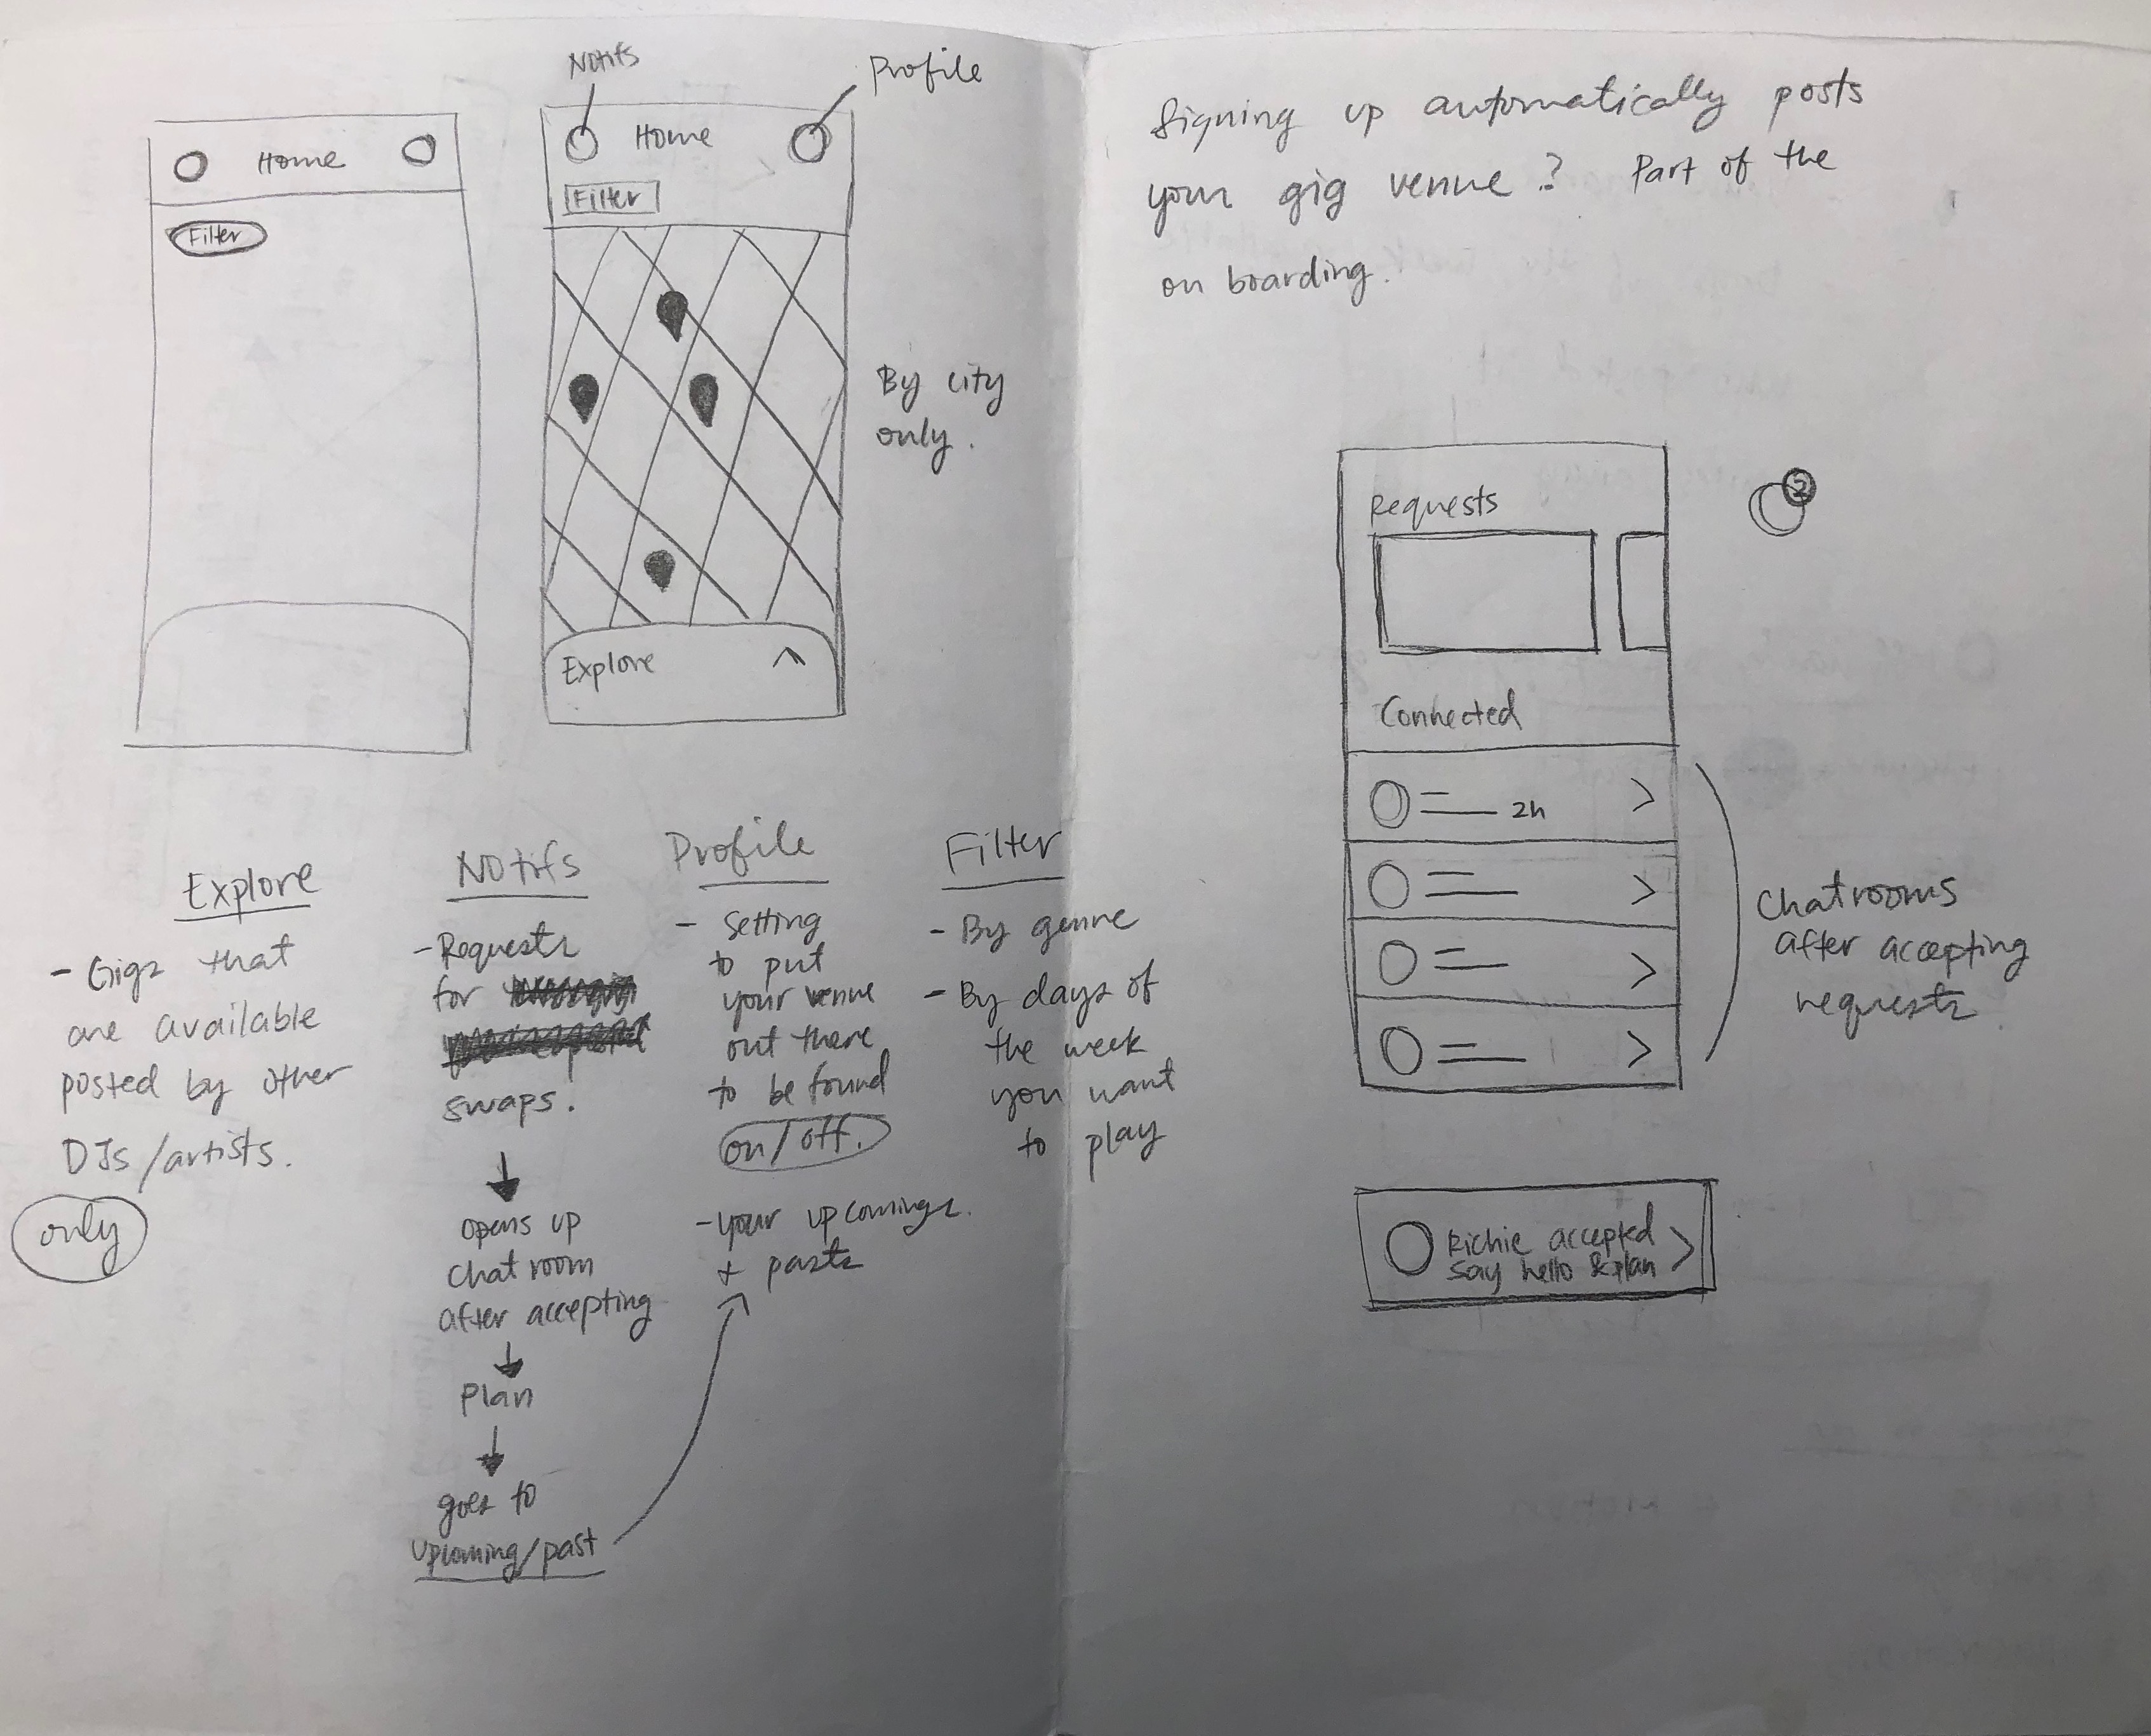 Notifs
Profile
Home
Filter
Home
Filter
By city
only.
Explore
Explore
- Gigs that
are available
posted by other
DJs/artists.
only
Notifs
- Requests
for
swaps.
opens up
chat room
after accepting
Plan
goes to
upcoming/past
Profile
- Setting
to put
your venue
out there
to be found
on/off.
- your upcomings
+ pasts
Filter
- By genre
- By days of
the week
you want
to play
Signing up automatically posts
your gig venue? Part of the
on boarding.
Requests
2
Connected
2h
Chatrooms
after accepting
requests
Richie accepted
Say hello & plan